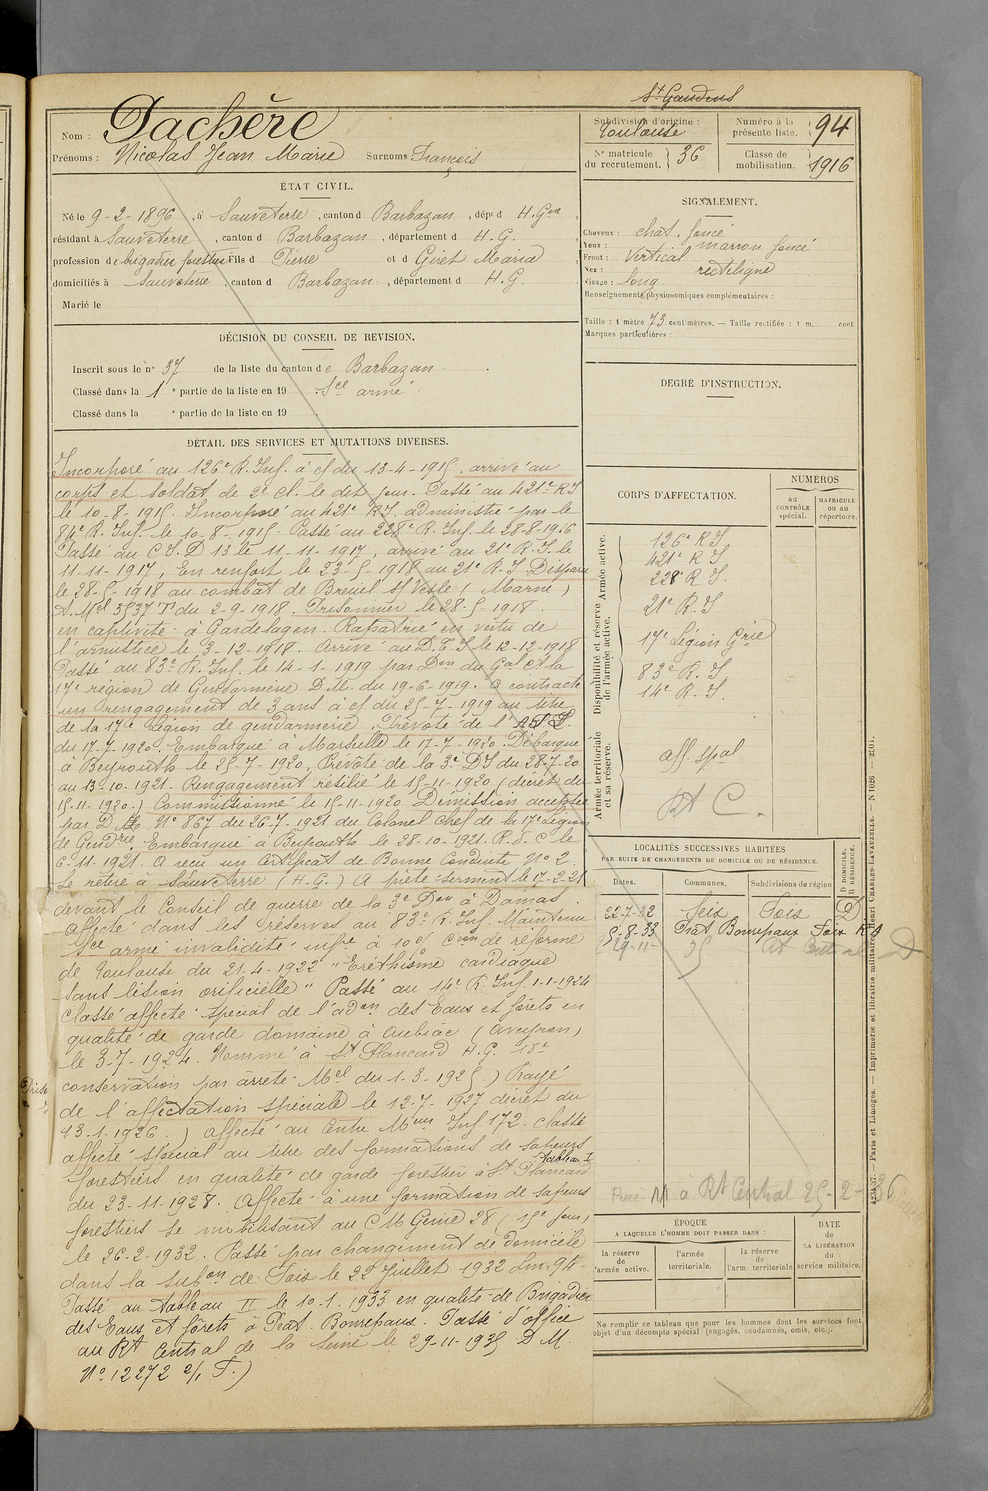 St Gaudens
Nom : Pachère
Prénoms : Nicolas Jean Marie Surnoms François
Subdivision d'origine : Toulouse
Numéro à la présente liste. 94
Nº matricule du recrutement. 36
Classe de mobilisation. 1916
ÉTAT CIVIL.
Né le 9-2-1896, à Sauveterre, canton d Barbazan, dépt d H. Gne
résidant à Sauveterre, canton d Barbazan, département d H. G.
profession de brigadier forestier Fils d Pierre et d Giret Maria
domiciliés à Sauveterre, canton d Barbazan, département d H. G.
Marié le
SIGNALEMENT.
Cheveux : chat. foncé
Yeux : marron foncé
Front : Vertical
Nez : rectiligne
Visage : long
Renseignements physionomiques complémentaires :
Taille : 1 mètre 73 centimètres. — Taille rectifiée : 1 m. cent
Marques particulières :
DÉCISION DU CONSEIL DE REVISION.
Inscrit sous le nº 37 de la liste du canton de Barbazan
Classé dans la 1 e partie de la liste en 19 . Sce armé
Classé dans la e partie de la liste en 19 .
DEGRÉ D'INSTRUCTION.
DÉTAIL DES SERVICES ET MUTATIONS DIVERSES.
Incorporé au 126e R. Inf. à cf du 13-4-1915, arrivé au
corps et soldat de 2e cl. le dit jour. Passé au 421e R I
le 10-8-1915. Incorporé au 421e R I. administré par le
84e R. Inf. le 10-8-1915. Passé au 228e R. Inf. le 28-8-1916
Passé au C. I. D 13 le 11-11-1917, arrivé au 21e R. I. le
11-11-1917, En renfort le 23-5-1918 au 21e R. I Disparu
le 28-5-1918 au combat de Breuil s/ Vesle (Marne)
A. Mel 3537 T du 2-9-1918. Prisonnier le 28-5-1918.
en captivité à Gardelagen. Rapatrié en vertu de
l'armistice le 3-12-1918. Arrivé au D. T. I le 12-12-1918
Passé au 83e R. Inf. le 14-1-1919 par Don du Gal Ct la
17e région de Gendarmerie D. M. du 19-6-1919. A contracté
un rengagement de 3 ans à cf du 25-7-1919 au titre
de la 17e Légion de gendarmerie. Prévôté de l'
du 17-7-1920. Embarqué à Marseille le 17-7-1920. Débarqué
à Beyrouth le 25-7-1920, Prévôté de la 3e DI du 28-7-20
au 13-10-1921. Rengagement résilié le 15-11-1920 (décret du
15-11-1920.) Commissionné le 15-11-1920 Démission acceptée
par D. Nº 867 du 26-7-1921 du Colonel Chef de la 17e Légion
de Gendrie. Embarqué à Beyrouth le 28-10-1921. R. d. C le
6-11-1921. A reçu un Certificat de Bonne Conduite Nº 2
Se retire à Sauveterre (H.G.) A prêté serment le 7-2-21
devant le Conseil de guerre de la 3e Don à Damas
Affecté dans les réserves au 83e R. Inf. Maintenu
Sce armé invalidité infre à 10% Con de réforme
de Toulouse du 21-4-1922 "Eréthisme cardiaque
sans lésion orificielle" Passé au 14e R. Inf. 1-1-1924
Classé affecté spécial de l'adon des Eaux et forêts en
qualité de garde domaine à Aubrac (Aveyron)
le 3-7-1924. Nommé à St Plancard H.G. 18e
conservation par arrêté Mel du 1-3-1925.) Rayé
de l'affectation spéciale le 12-7-1927 décret du
13-1-1926.) Affecté au Centre Inf 172 classé
affecté spécial au titre des formations de sapeurs
tableau I
forestiers en qualité de garde forestier à St Plancard
du 23-11-1928. Affecté à une formation de sapeurs
forestiers se mobilisant au C M Génie 28 (15e jour)
le 26-2-1932. Passé par changement de domicile
dans la subon de Foix le 22 Juillet 1932 94
Passé au tableau II le 10-1-1933 en qualité de Brigadier
des Eaux et forêts à Prat-Bonrepaux. Passé d'office
au Rt Central de la Seine le 29-11-1935 D M
Nº 12272 2/1 T.)
CORPS D'AFFECTATION.
NUMÉROS
au contrôle spécial.
matricule ou au répertoire.
Armée active.
Disponibilité et réserve de l'armée active.
Armée territoriale et sa réserve.
126e R I
421e R I
228e R I.
21e R. I
17e Légion Grie
83e R. I
14e R. I.
aff. spal
Rt C.
LOCALITÉS SUCCESSIVES HABITÉES
PAR SUITE DE CHANGEMENTS DE DOMICILE OU DE RÉSIDENCE.
D. DOMICILE. R RÉSIDENCE.
Dates. Communes. Subdivisions de région
22-7-32 Foix Foix D
5-8-33 Prat Bonrepaux Foix
29-11-35 Rt Central D
M à Rt Central 25-2-36
ÉPOQUE
A LAQUELLE L'HOMME DOIT PASSER DANS :
la réserve de l'armée active.
l'armée territoriale.
la réserve de l'arm. territoriale
DATE de LA LIBÉRATION du service militaire.
Ne remplir ce tableau que pour les hommes dont les services font
objet d'un décompte spécial (engagés, condamnés, omis, etc.).
Paris et Limoges. — Imprimerie et librairie militaires Henri CHARLES-LAVAUZELLE. — N 1026